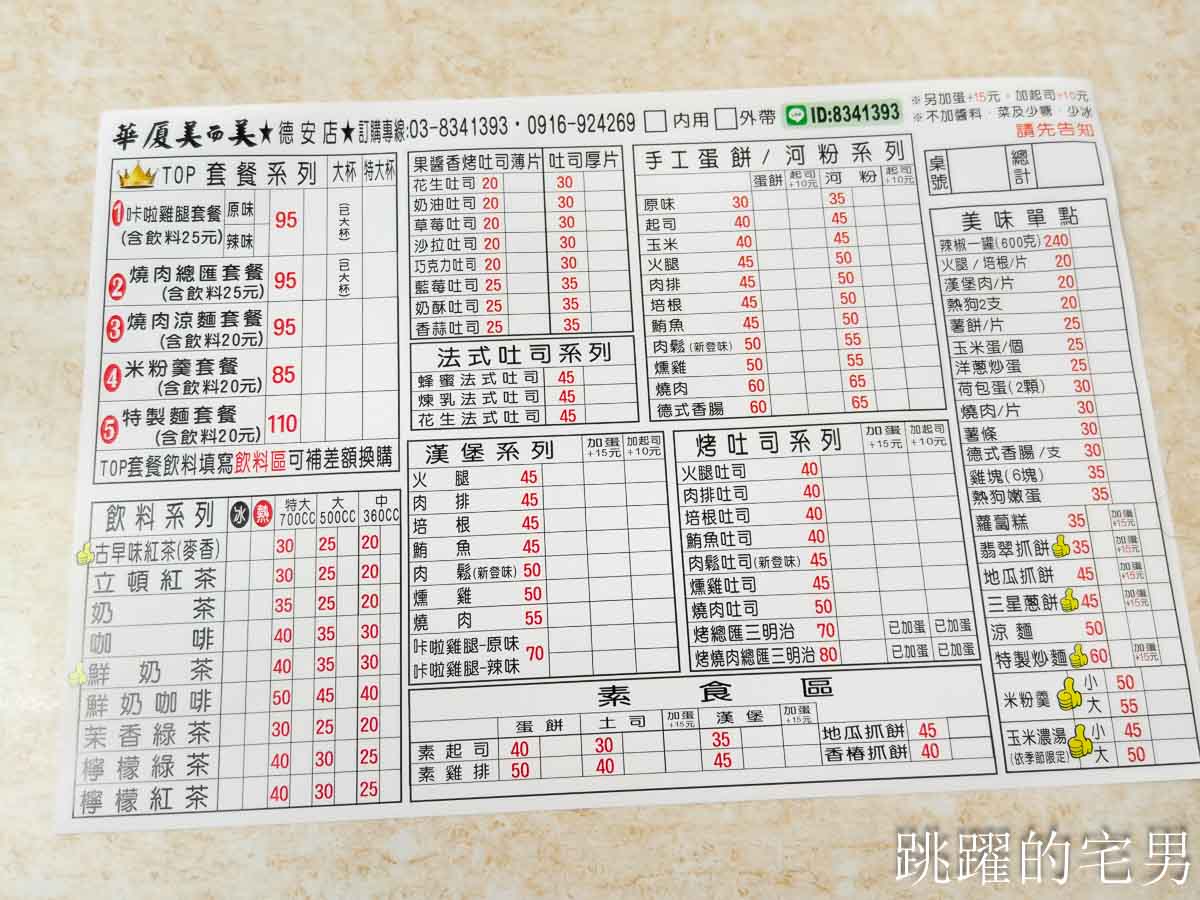 華廈美而美★德安店★訂購專線:03-8341393・0916-924269 □內用 □外帶 LINE ID:8341393
※另加蛋+15元，加起司+10元
※不加醬料、菜及少糖、少冰
請先告知
桌號 總計
TOP 套餐系列 大杯 特大杯
1 咔啦雞腿套餐 原味 95 (已大杯)
(含飲料25元) 辣味
2 燒肉總匯套餐 95 (已大杯)
(含飲料25元)
3 燒肉涼麵套餐 95
(含飲料20元)
4 米粉羹套餐 85
(含飲料20元)
5 特製麵套餐 110
(含飲料20元)
TOP套餐飲料填寫飲料區可補差額換購
飲料系列 冰 熱 特大700CC 大500CC 中360CC
古早味紅茶(麥香) 30 25 20
立頓紅茶 30 25 20
奶茶 35 25 20
咖啡 40 35 30
鮮奶茶 40 35 30
鮮奶咖啡 50 45 40
茉香綠茶 30 25 20
檸檬綠茶 40 30 25
檸檬紅茶 40 30 25
果醬香烤吐司薄片 吐司厚片
花生吐司 20 30
奶油吐司 20 30
草莓吐司 20 30
沙拉吐司 20 30
巧克力吐司 20 30
藍莓吐司 25 35
奶酥吐司 25 35
香蒜吐司 25 35
法式吐司系列
蜂蜜法式吐司 45
煉乳法式吐司 45
花生法式吐司 45
漢堡系列 加蛋+15元 加起司+10元
火腿 45
肉排 45
培根 45
鮪魚 45
肉鬆(新登味) 50
燻雞 50
燒肉 55
咔啦雞腿-原味 70
咔啦雞腿-辣味
手工蛋餅/河粉系列
蛋餅 起司+10元 河粉 起司+10元
原味 30 35
起司 40 45
玉米 40 45
火腿 45 50
肉排 45 50
培根 45 50
鮪魚 45 50
肉鬆(新登味) 50 55
燻雞 50 55
燒肉 60 65
德式香腸 60 65
烤吐司系列 加蛋+15元 加起司+10元
火腿吐司 40
肉排吐司 40
培根吐司 40
鮪魚吐司 40
肉鬆吐司(新登味) 45
燻雞吐司 45
燒肉吐司 50
烤總匯三明治 70 已加蛋 已加蛋
烤燒肉總匯三明治 80 已加蛋 已加蛋
素食區
蛋餅 土司 加蛋+15元 漢堡 加蛋+15元
素起司 40 30 35
素雞排 50 40 45
地瓜抓餅 45
香椿抓餅 40
美味單點
辣椒一罐(600克) 240
火腿/培根/片 20
漢堡肉/片 20
熱狗2支 20
薯餅/片 25
玉米蛋/個 25
洋蔥炒蛋 25
荷包蛋(2顆) 30
燒肉/片 30
薯條 30
德式香腸/支 30
雞塊(6塊) 35
熱狗嫩蛋 35
蘿蔔糕 35 加蛋+15元
翡翠抓餅 35 加蛋+15元
地瓜抓餅 45 加蛋+15元
三星蔥餅 45 加蛋+15元
涼麵 50
特製炒麵 60 加蛋+15元
米粉羹 小 50
大 55
玉米濃湯 小 45
(依季節限定) 大 50
跳躍的宅男